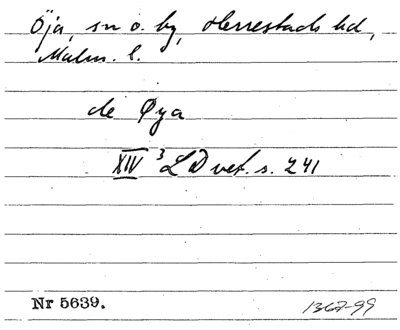 Öja, sn o. by, Herrestads hd,
Malm. l.
de Øya
XIV 3 LD vet. s. 241
Nr 5639.
1367-99